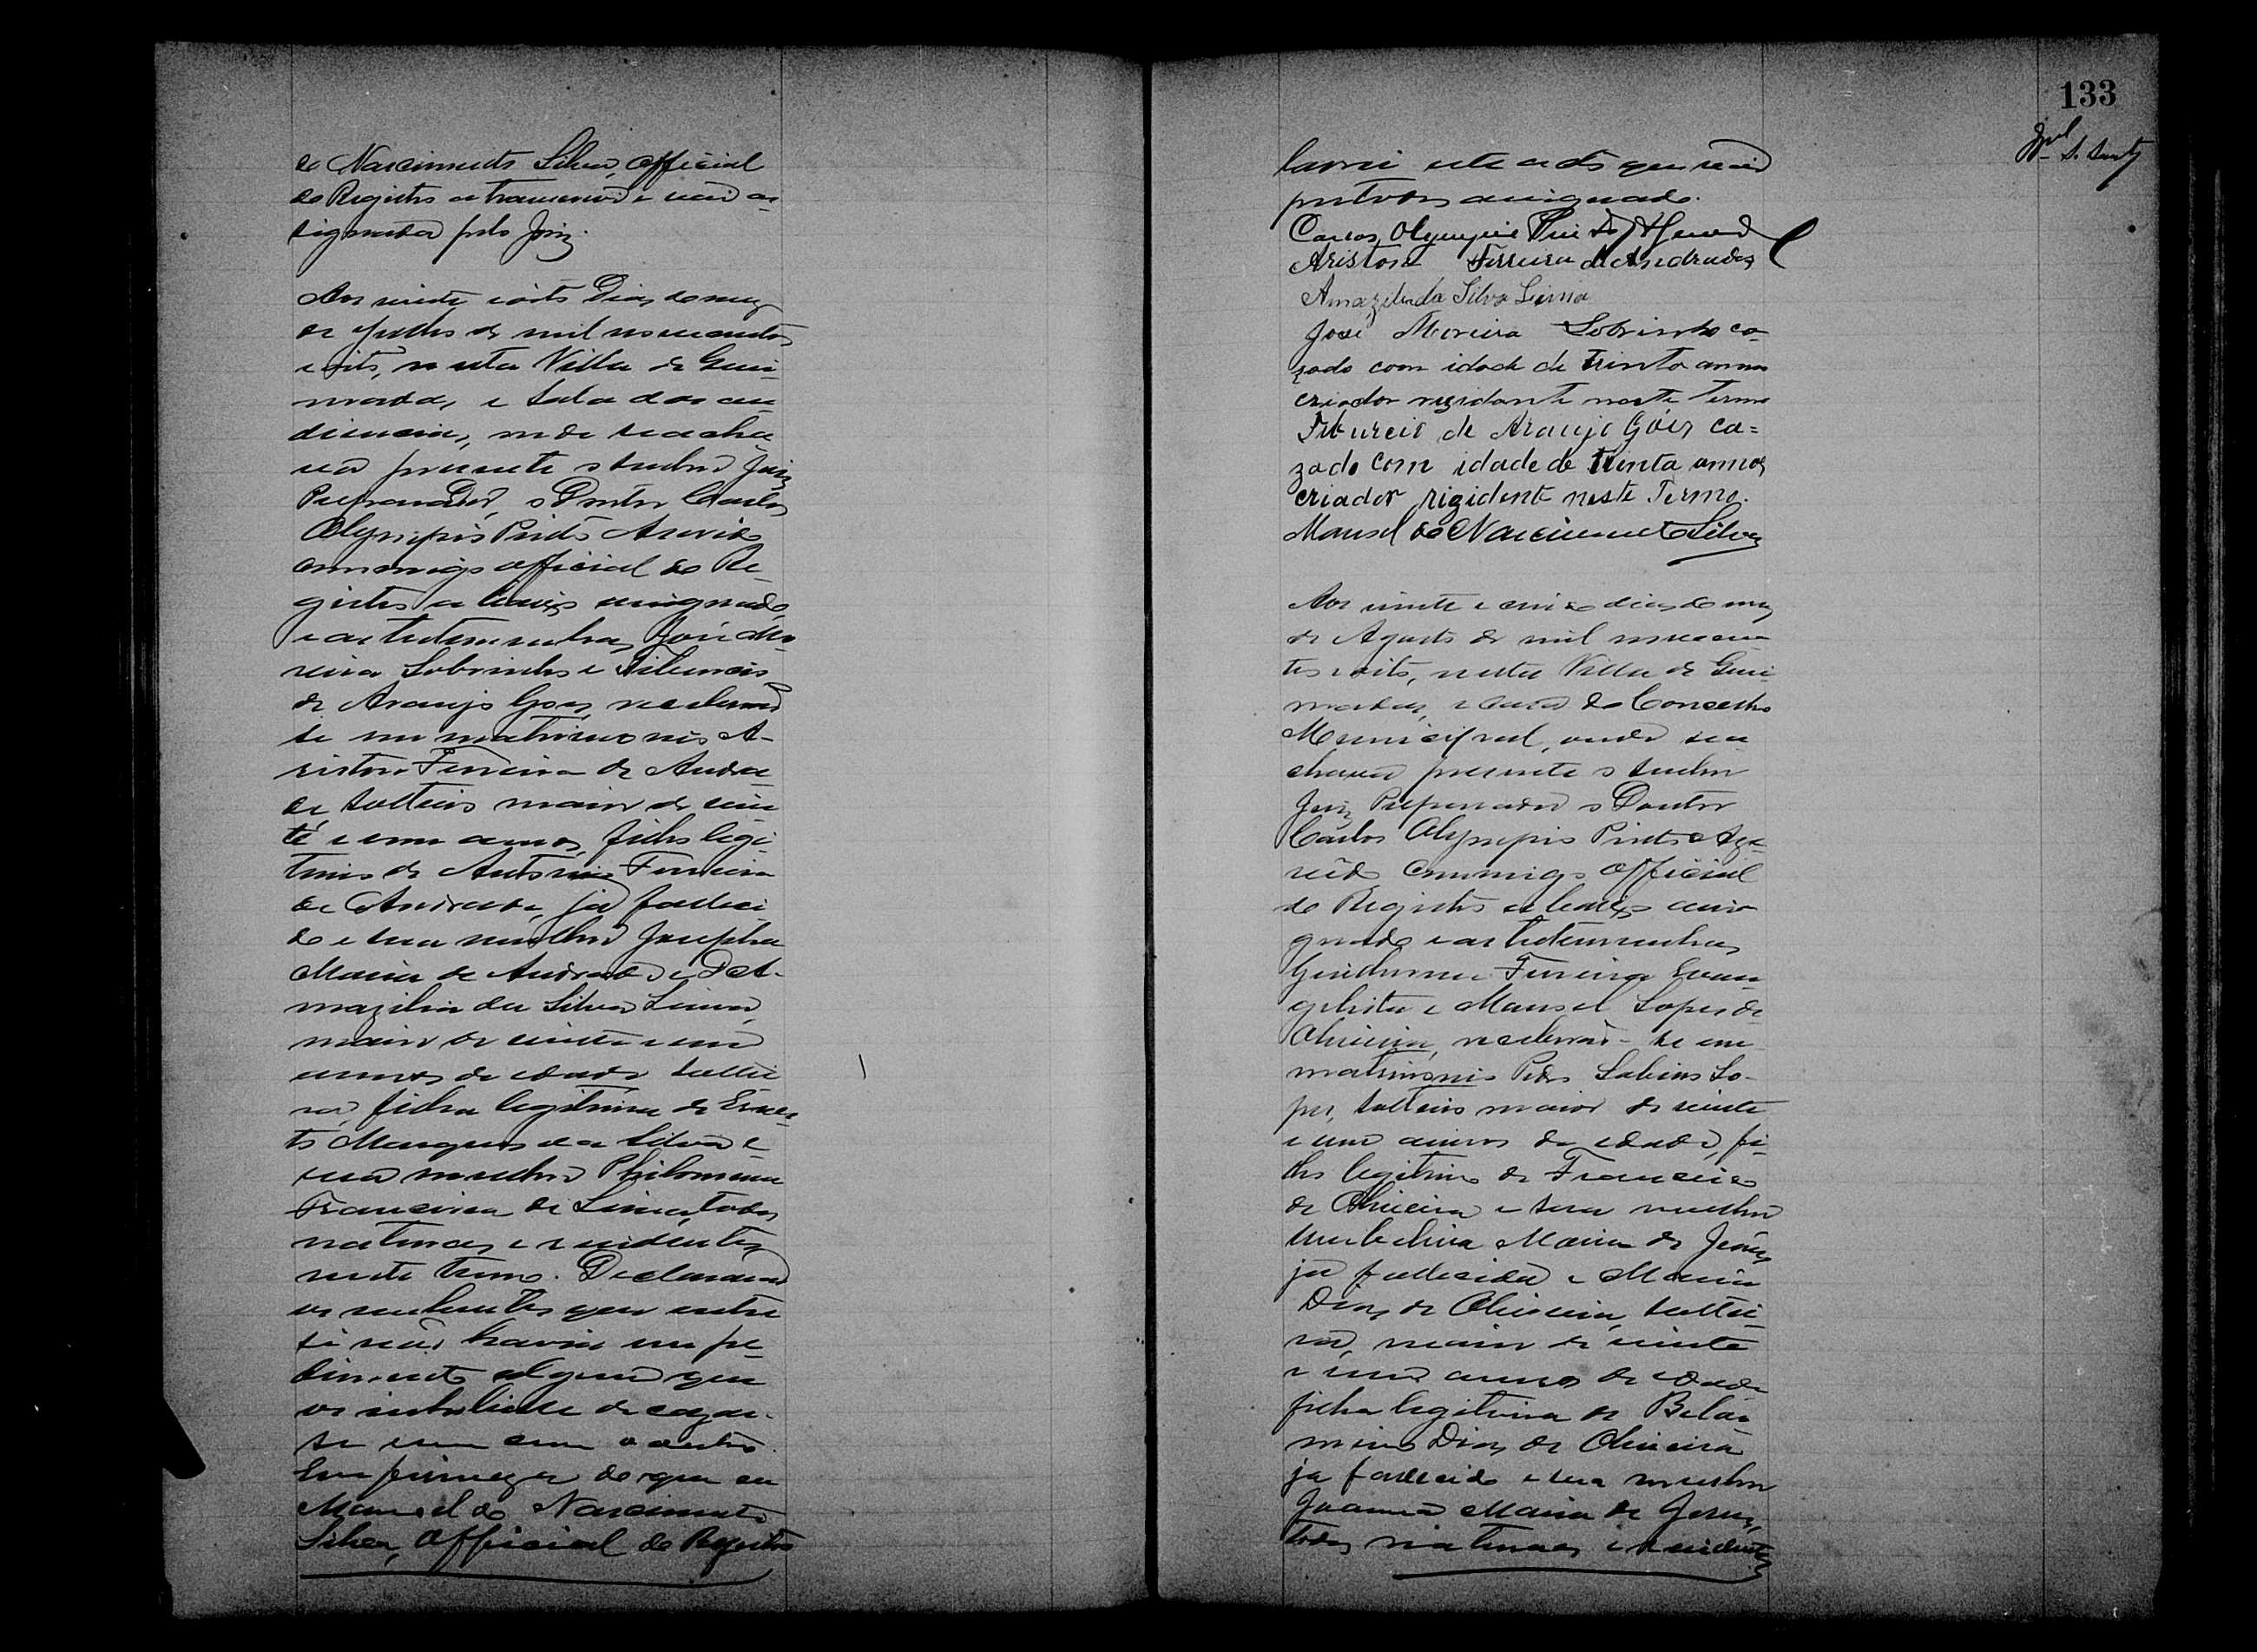 do Nascimento Silva, Official
do Registro a transcrevi e vai as-
signada pelo Juiz.
Aos vinte e oito dias do mez
de Julho de mil novecentos
e oito, nesta Villa de Guei-
madas, e sala das au-
diencias, onde se acha-
va presente o Senhor Juiz
Preparador, o Doutor Carlos
Olympio Pinto Azevedo
commigo official do Re-
gistro a baixo assignado
e as testemunhas José Mo-
reira Sobrinho e Tiburcio
de Araujo Goes, receberão
se em matrimonio A-
riston Ferreira de Andra-
de, solteiro maior de vin-
te e um annos, filho legi-
timo de Antonio Ferreira
de Andrade, já falleci-
do e sua mulher Josepha
Maria de Andrade e D. A-
mazilia da Silva Lima,
maior de vinte e um
annos de idade soltei-
ra, filha legitima de
Marques da Silva e
sua mulher Philomena
Francisca de Lima, todos
naturaes e residentes
neste termo. Declararão
os nubentes que entre
si não havia impe-
dimento algum que
os inhibisse de cazar-
se um com o outro.
Em firmeza do que eu
Manoel do Nascimento
Silva, Official do Registro
133
lavrei este acto que vai
por todos assignado.
Carlos Olympio Pinto de Azevedo
Ariston Ferreira de Andrade
Amazilia da Silva Lima
José Moreira Sobrinho ca-
zado com idade de trinta annos
criador rezidente neste Termo
Tiburcio de Araujo Góes ca=
zado com idade de trinta annos
criador rizidente neste Termo.
Manoel do Nascimento Silva
Aos vinte e cinco dias do mez
de Agosto de mil novecen-
tos e oito, nesta Villa de Guei-
madas, e casa do Concelho
Municipal, onde se a-
chava presente o Senhor
Juiz Preparador o Doutor
Carlos Olympio Pinto Aze-
vêdo commigo Official
do Registro a baixo assi-
gnado e as testemunhas
Guilherme Ferreira Evan-
gelista e Manoel Lopes de
Oliveira, receberão-se em
matrimonio Pedro Sabino Lo-
pes, solteiro maior de vinte
e um annos de idade, fi-
lho legitimo de Francisco
de Oliveira e sua mulher
Umbelina Maria de Jesus,
já fallecida e Maria
Dias de Oliveira, soltei-
ra, maior de vinte
e um annos de idade
filha legitima de Belar-
mino Dias de Oliveira
já fallecido e sua mulher
Joanna Maria de Jesus,
todos naturaes e residentes